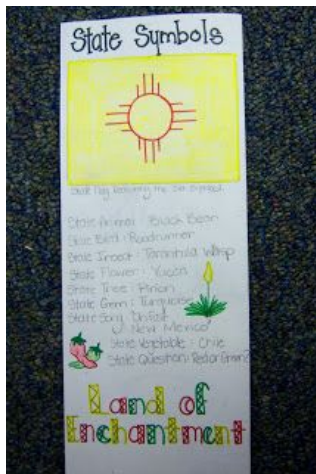 State Symbols
State Flag featuring the Sun Symbol.
State Animal: Black Bear
State Bird: Roadrunner
State Insect: Tarantula Wasp
State Flower: Yucca
State Tree: Pinion
State Gem: Turquoise
State Song
New Mexico"
State Vegetable: Chile
State Question: Red or Green?
Land of
Enchantment